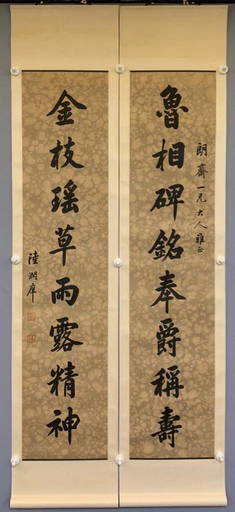 朗齋一兄大人雅正
魯相碑銘奉爵稱壽
金枝瑤草雨露精神
陸潤庠